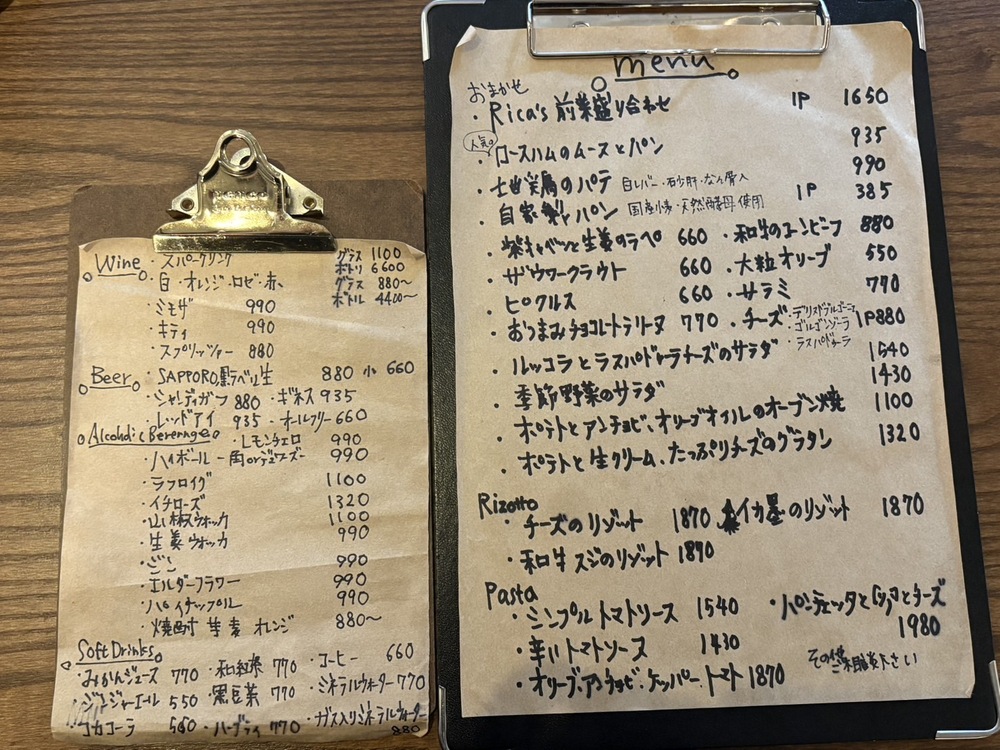 Wine ・スパークリング グラス 1100
ボトル 6600
白・オレンジ・ロゼ・赤 グラス 880〜
ボトル 4400〜
・ミモザ 990
・キティ 990
・スプリッツァー 880
Beer ・SAPPORO黒ラベル生 880 小 660
・シャンディガフ 880 ・ギネス 935
・レッドアイ 935 ・オールフリー 660
Alcoholic Bererage ・レモンチェロ 990
・ハイボール ー角orデュワーズー 990
・ラフロイグ 1100
・イチローズ 1320
・山椒ウォッカ 1100
・生姜ウォッカ 990
・ジン 990
・エルダーフラワー 990
・パイナップル 990
・焼酎 芋 麦 オレンジ 880〜
Soft Drinks
・みかんジュース 770 ・和紅茶 770 ・コーヒー 660
・ジンジャーエール 550 ・黒豆茶 770 ・ミネラルウォーター 770
コカコーラ 550 ・ハーブティ 770 ・ガス入りミネラルウォーター 880
menu
おまかせ
・Rica's 前菜盛り合わせ 1P 1650
人気
・ロースハムのムースとパン 935
・土地実鶏のパテ 白レバー・砂肝・なん骨入 990
・自家製パン 国産小麦・天然酵母使用 1P 385
・紫キャベツと生姜のラペ 660 ・和牛のコンビーフ 880
・ザウワークラウト 660 ・大粒オリーブ 550
・ピクルス 660 ・サラミ 770
・おつまみチョコレートテリーヌ 770 ・チーズ ・ゴルゴンゾーラ ・ラスパドゥーラ 1P 880
・ルッコラとラスパドゥーラチーズのサラダ 1540
・季節野菜のサラダ 1430
・ポテトとアンチョビ、オリーブオイルのオーブン焼 1100
・ポテトと生クリーム、たっぷりチーズのグラタン 1320
Rizotto
・チーズのリゾット 1870 ・イカ墨のリゾット 1870
・和牛スジのリゾット 1870
Pasta
・シンプルトマトソース 1540 ・パンチェッタと卵とチーズ 1980
・辛いトマトソース 1430
・オリーブ・アンチョビ・ケッパー・トマト 1870
その他ご相談下さい